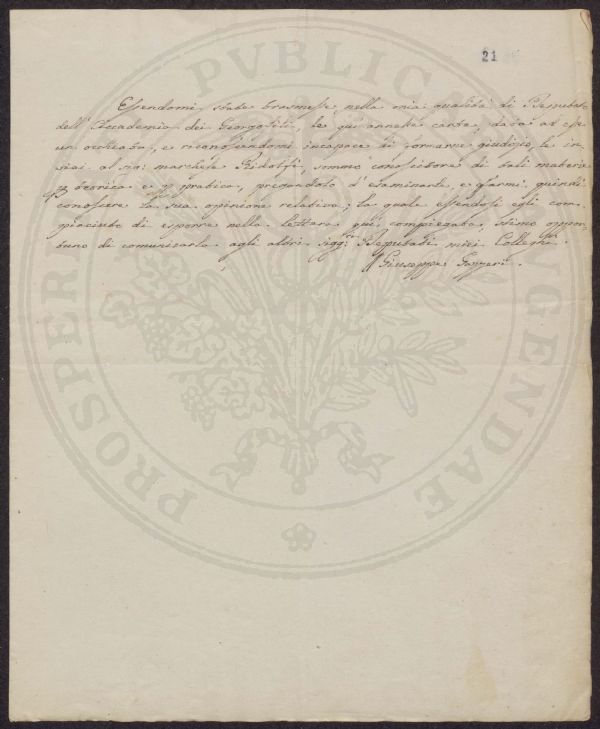 21
Essendomi state trasmesse nella mia qualità di Deputato
dell'Accademia dei Georgofili, le qui annesse carte, data ad esse
un'occhiata, e riconoscendomi incapace di formarne giudizio, le in-
viai al sig: marchese Ridolfi, sommo conoscitore di tali materie
p teorica e p pratica, pregandolo d'esaminarle, e farmi quindi
conoscere la sua opinione relativa; la quale essendosi egli com-
piaciuto di esporre nella lettera qui compiegata, stimo oppor-
tuno di comunicarla agli altri Sigg:ri Deputati miei Colleghi.
Giuseppe Gazzeri.
PROSPERITATI PVBLICAE AVGENDAE